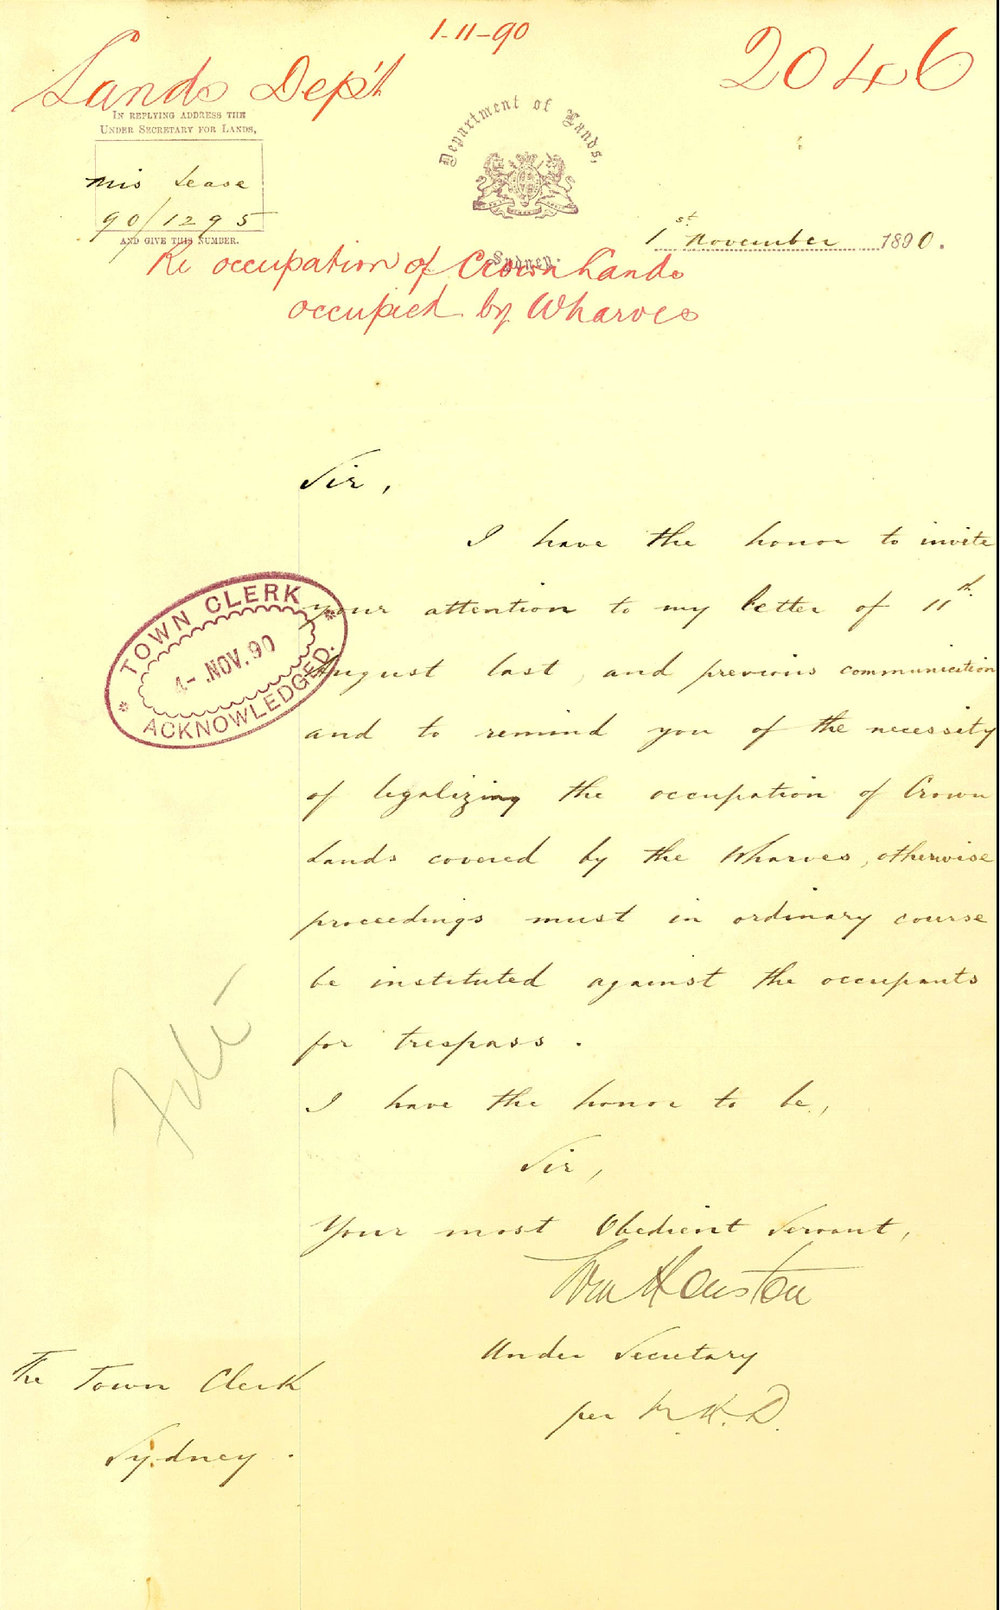 1-11-90
2046
Lands Dep't
IN REPLYING ADDRESS THE
UNDER SECRETARY FOR LANDS,
Mis Lease
90/1295
AND GIVE THIS NUMBER.
Department of Lands,
Sydney.
1st November 1890.
Re occupation of Crown Lands
occupied by Wharves
Sir,
I have the honor to invite
your attention to my letter of 11th
August last, and previous communication
and to remind you of the necessity
of legalizing the occupation of Crown
Lands covered by the Wharves, otherwise
proceedings must in ordinary course
be instituted against the occupants
for trespass.
TOWN CLERK
4-.NOV.90
ACKNOWLEDGED.
File
I have the honor to be,
Sir,
Your most Obedient Servant,
Wm Houston
Under Secretary
per
The Town Clerk
Sydney.